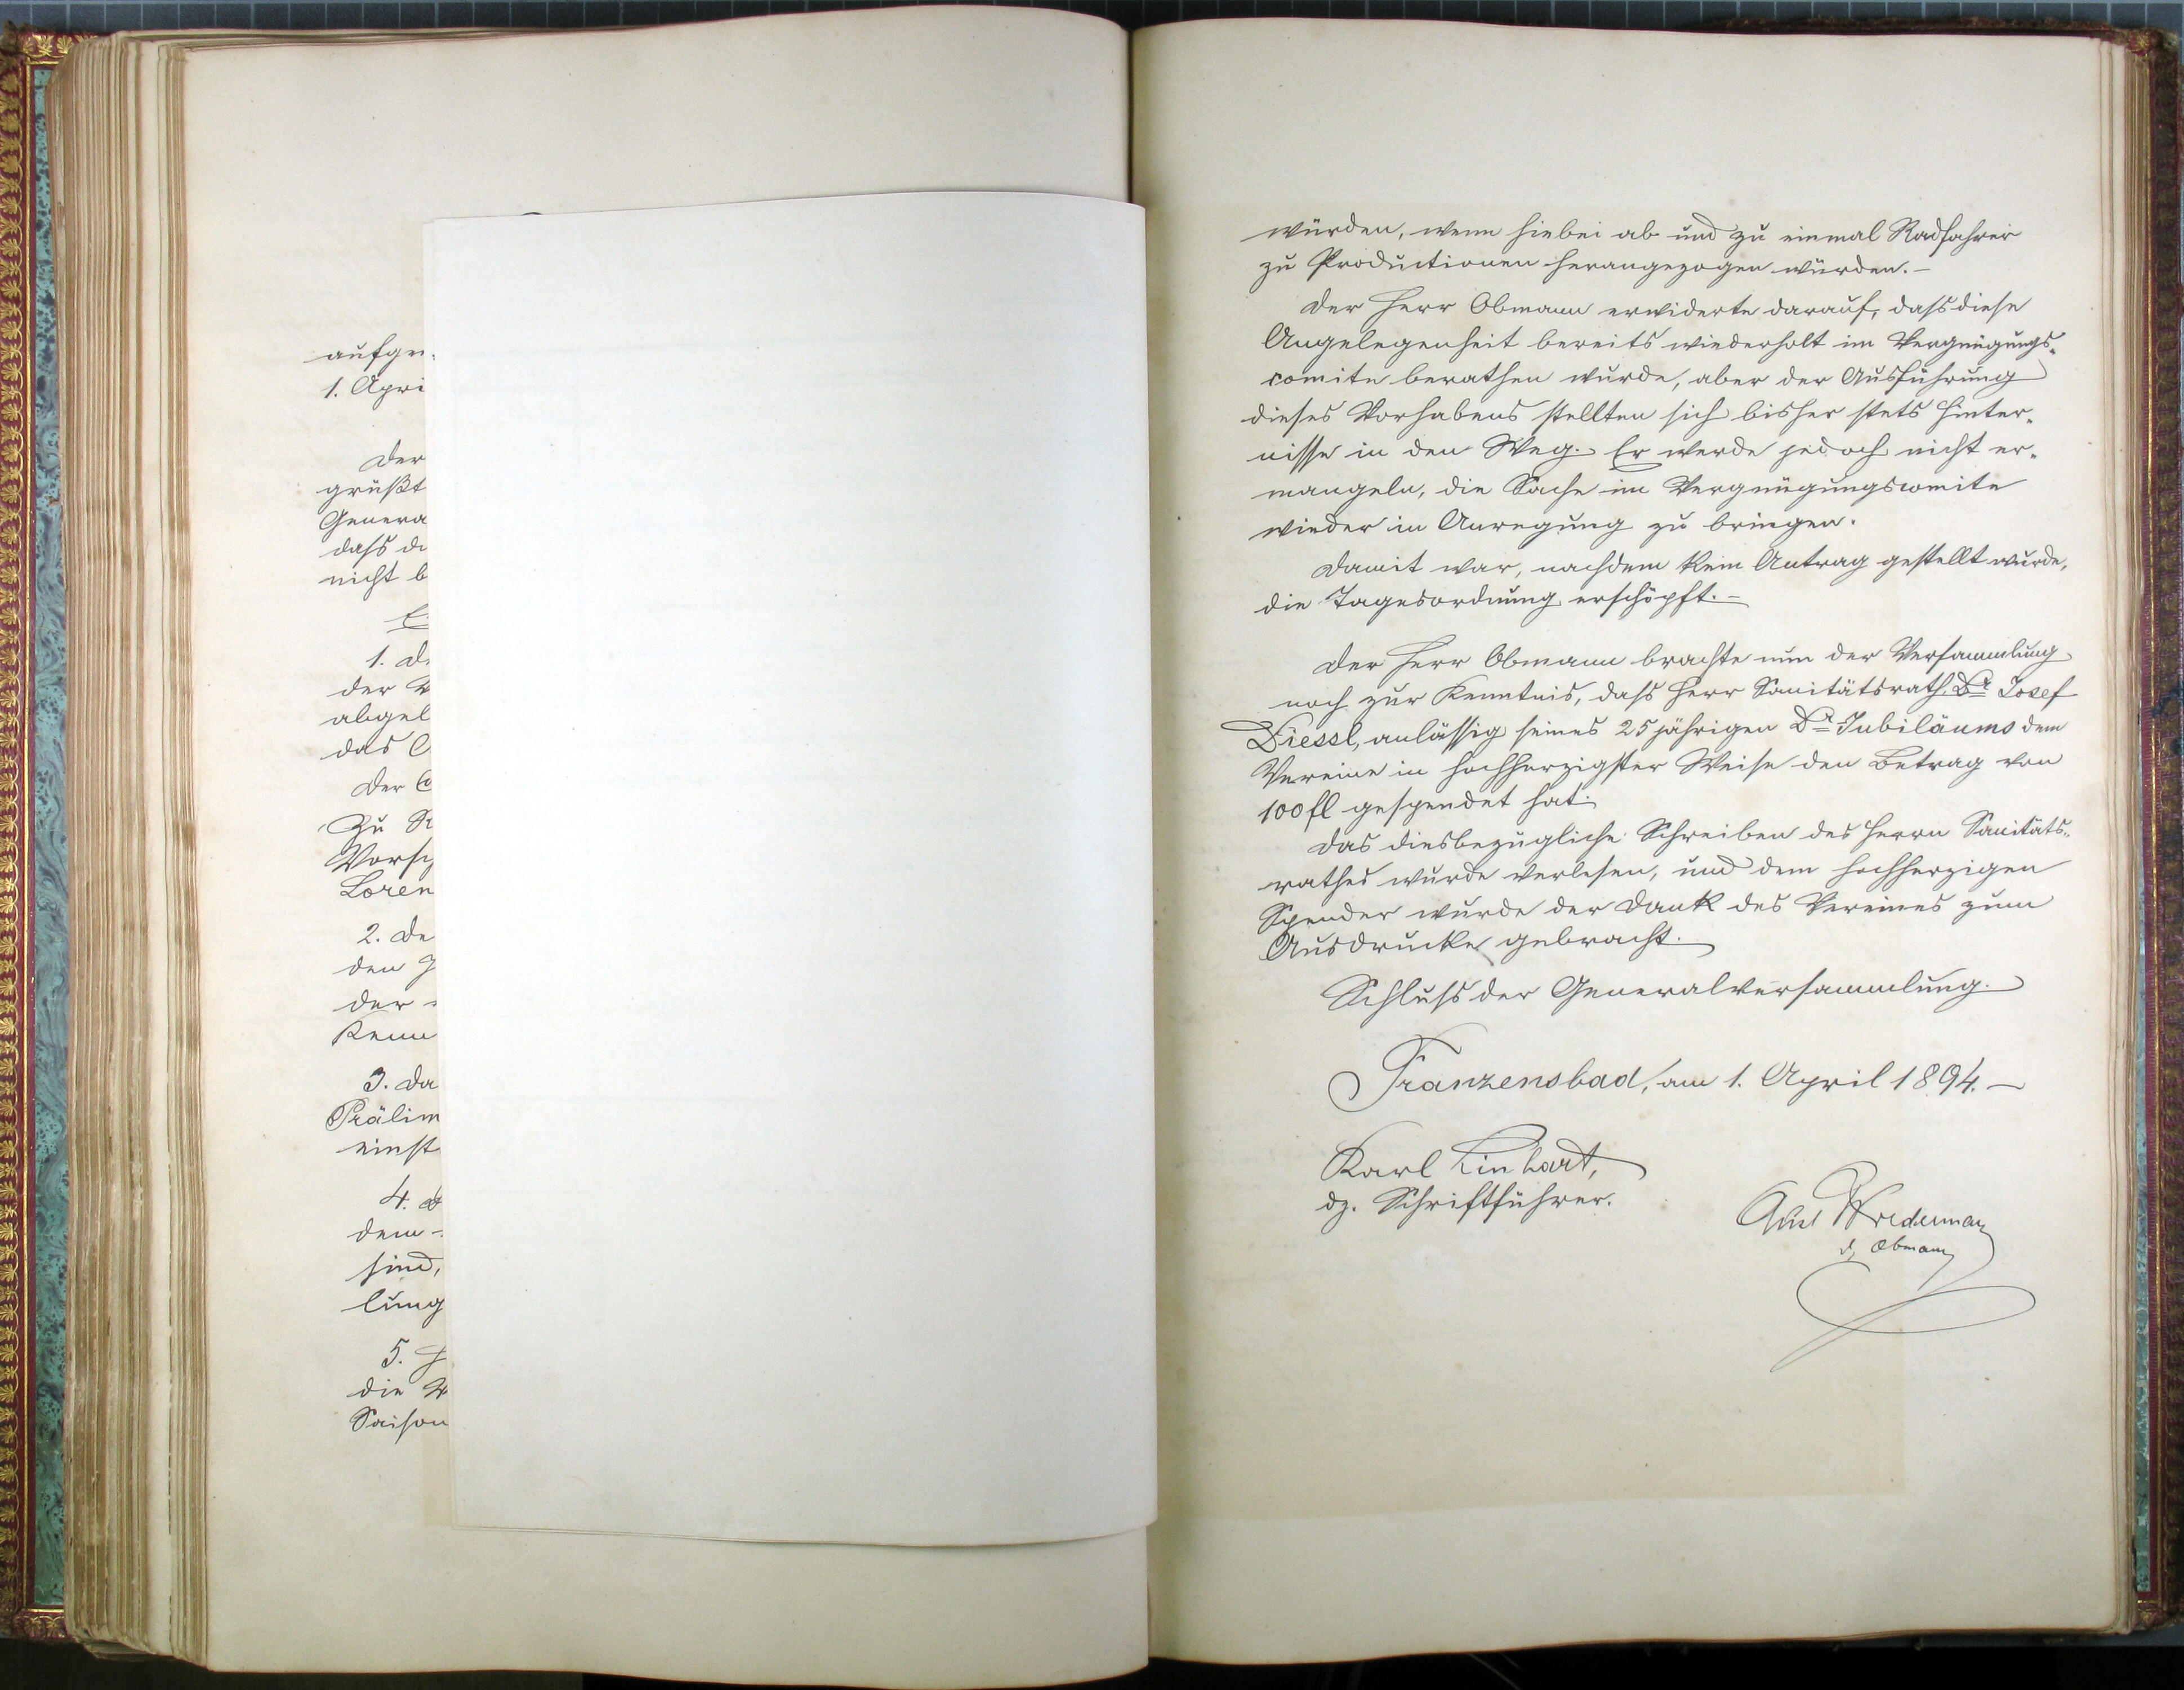 aufge-
1. Apri
Der
grüßt
Genera
dass d
nicht b
1. D
der V
abgel
das
Der
Zu
Vorsch
Loren
2. De
den
der
Kenn
3. Da
Prälim
einst
4.
dem
sind,
lung
5.
die
Saison
würden, wenn hiebei ab und zu einmal Radfahrer
zu Productionen herangezogen würden. –
Der Herr Obmann erwiderte darauf, dass diese
Angelegenheit bereits wiederholt im Vergnügungs-
comite berathen wurde, aber der Ausführung
dieses Vorhabens stellten sich bisher stets Hinter-
nisse in den Weg. Er werde jedoch nicht er-
mangeln, die Sache im Vergnügungscomite
wieder in Anregung zu bringen.
Damit war, nachdem kein Antrag gestellt wurde,
die Tagesordnung erschöpft. –
Der Herr Obmann brachte nun der Versammlung
noch zur Kenntnis, dass Herr Sanitätsrath Dr Josef
Diessl, anlässig seines 25 jährigen Dr Jubiläums dem
Vereine in hochherzigster Weise den Betrag von
100 fl gespendet hat.
Das diesbezügliche Schreiben des Herrn Sanitäts-
rathes wurde verlesen, und dem hochherzigen
Spender wurde der Dank des Vereines zum
Ausdrucke gebracht.
Schluss der Generalversammlung.
Franzensbad, am 1. April 1894. –
Karl Linhart,
dz. Schriftführer.
Wiedermann
dz Obmann